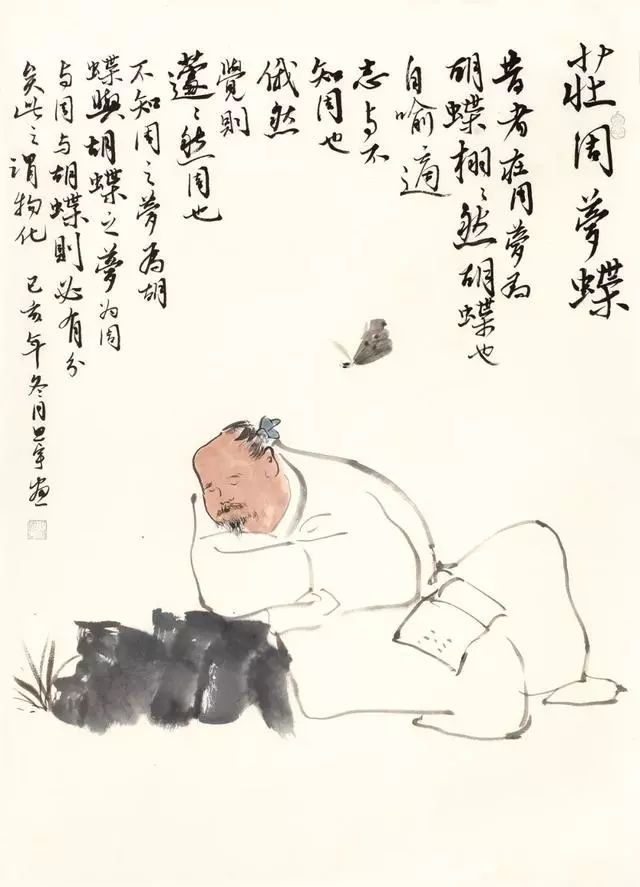 莊周夢蝶
昔者莊周夢为
胡蝶栩々然胡蝶也
自喻適
志与不
知周也
俄然
覺則
蘧々然周也
不知周之夢为胡
蝶與胡蝶之夢为周
与周与胡蝶則必有分
矣此之謂物化 己亥年冬月